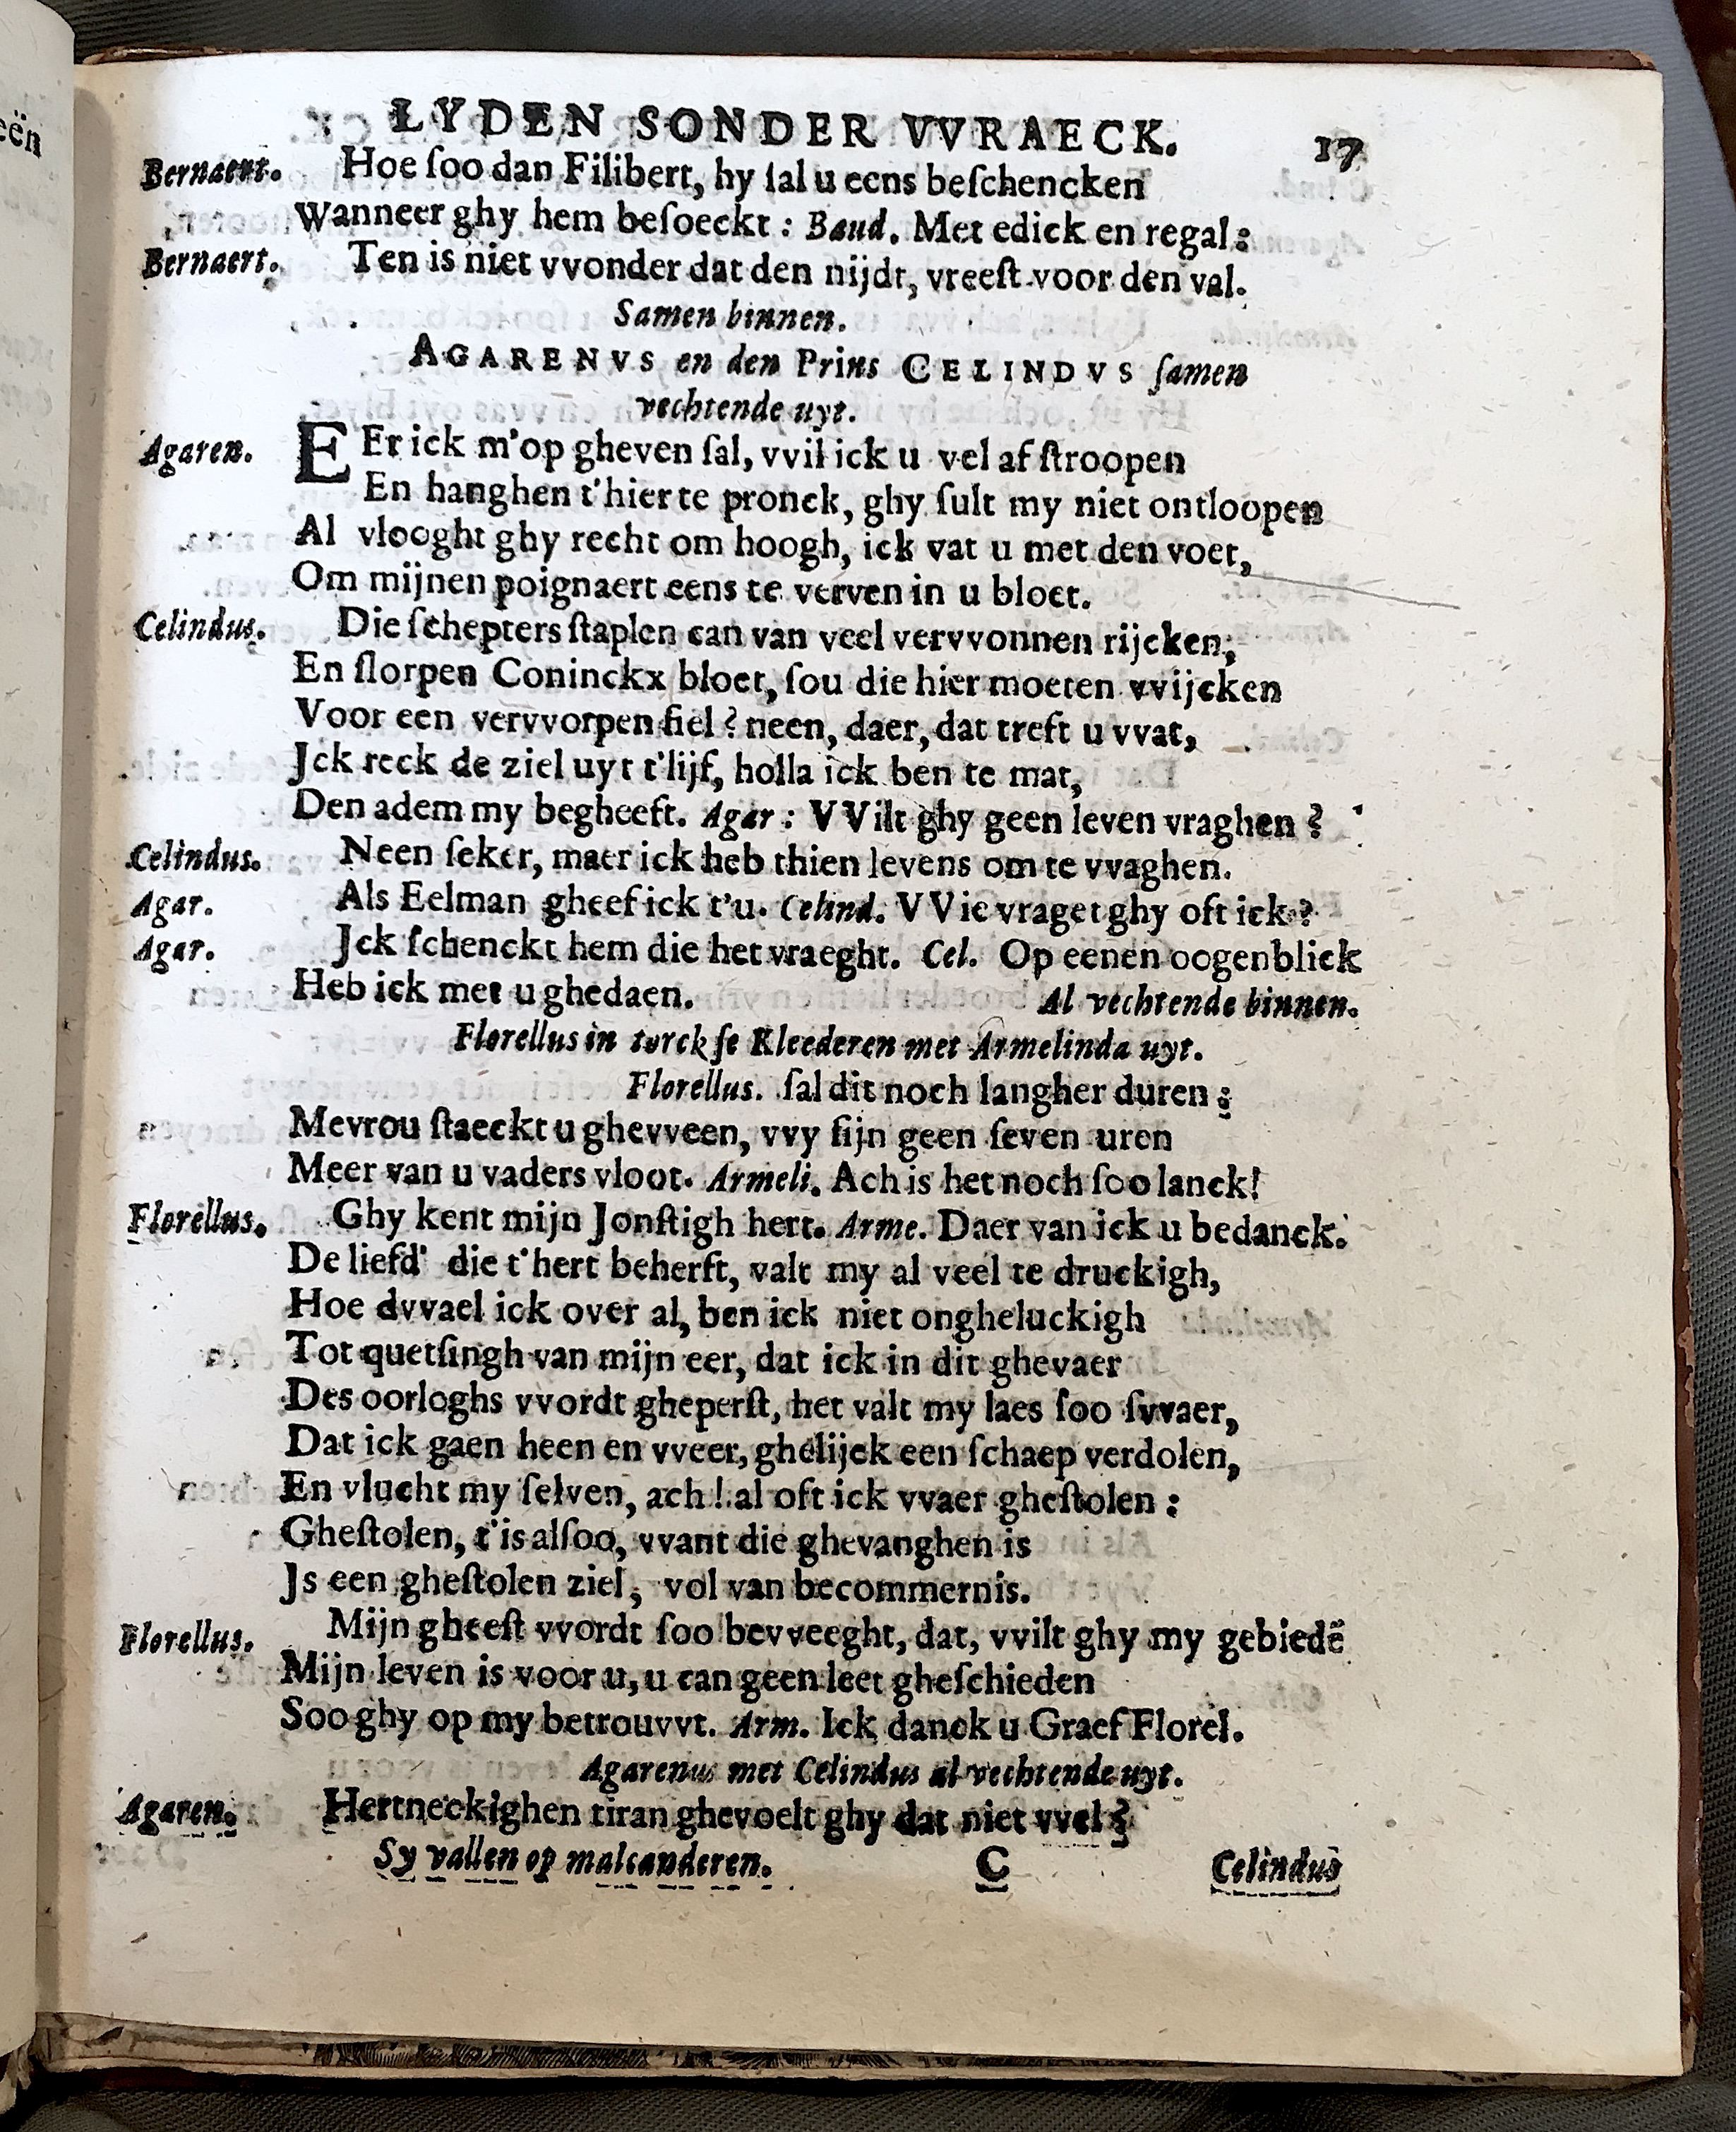 eën
LYDEN SONDER VVRAECK. 17
Bernaert. Hoe ſoo dan Filibert, hy ſal u eens beſchencken
Wanneer ghy hem beſoeckt : Baud. Met edick en regal :
Bernaert. Ten is niet vvonder dat den nijdt, vreeſt voor den val.
Samen binnen.
AGARENVS en den Prins CELINDVS ſamen
vechtende uyt.
Agaren. EEr ick m'op gheven ſal, vvil ick u vel af ſtroopen
En hanghen t'hier te pronck, ghy ſult my niet ontloopen
Al vlooght ghy recht om hoogh, ick vat u met den voet,
Om mijnen poignaert eens te verven in u bloet.
Celindus. Die ſchepters ſtaplen can van veel vervvonnen rijcken;
En ſlorpen Coninckx bloet, ſou die hier moeten vvijcken
Voor een vervvorpen fiel ? neen, daer, dat treft u vvat,
Jck reck de ziel uyt t'lijf, holla ick ben te mat,
Den adem my begheeft. Agar : VVilt ghy geen leven vraghen ?
Celindus. Neen ſeker, maer ick heb thien levens om te vvaghen.
Agar. Als Eelman gheef ick t'u. Celind. VVie vraget ghy oft ick ?
Agar. Jck ſchenckt hem die het vraeght. Cel. Op eenen oogenblick
Heb ick met u ghedaen. Al vechtende binnen.
Florellus in torckſe Kleederen met Armelinda uyt.
Florellus. ſal dit noch langher duren ;
Mevrou ſtaeckt u ghevveen, vvy ſijn geen ſeven uren
Meer van u vaders vloot. Armeli. Ach is het noch ſoo lanck!
Florellus. Ghy kent mijn Jonſtigh hert. Arme. Daer van ick u bedanck.
De liefd' die t'hert beherft, valt my al veel te druckigh,
Hoe dvvael ick over al, ben ick niet ongheluckigh
Tot quetſingh van mijn eer, dat ick in dit ghevaer
Des oorloghs vvordt gheperſt, het valt my laes ſoo ſvvaer,
Dat ick gaen heen en vveer, ghelijck een ſchaep verdolen,
En vlucht my ſelven, ach ! al oft ick vvaer gheſtolen :
Gheſtolen, t'is alſoo, vvant die ghevanghen is
Js een gheſtolen ziel, vol van becommernis.
Florellus. Mijn gheeſt vvordt ſoo bevveeght, dat, vvilt ghy my gebiedē
Mijn leven is voor u, u can geen leet gheſchieden
Soo ghy op my betrouvvt. Arm. Ick danck u Graef Florel.
Agarenus met Celindus al vechtende uyt.
Agaren. Hertneckighen tiran ghevoelt ghy dat niet vvel ?
Sy vallen op malcanderen. C Celindus